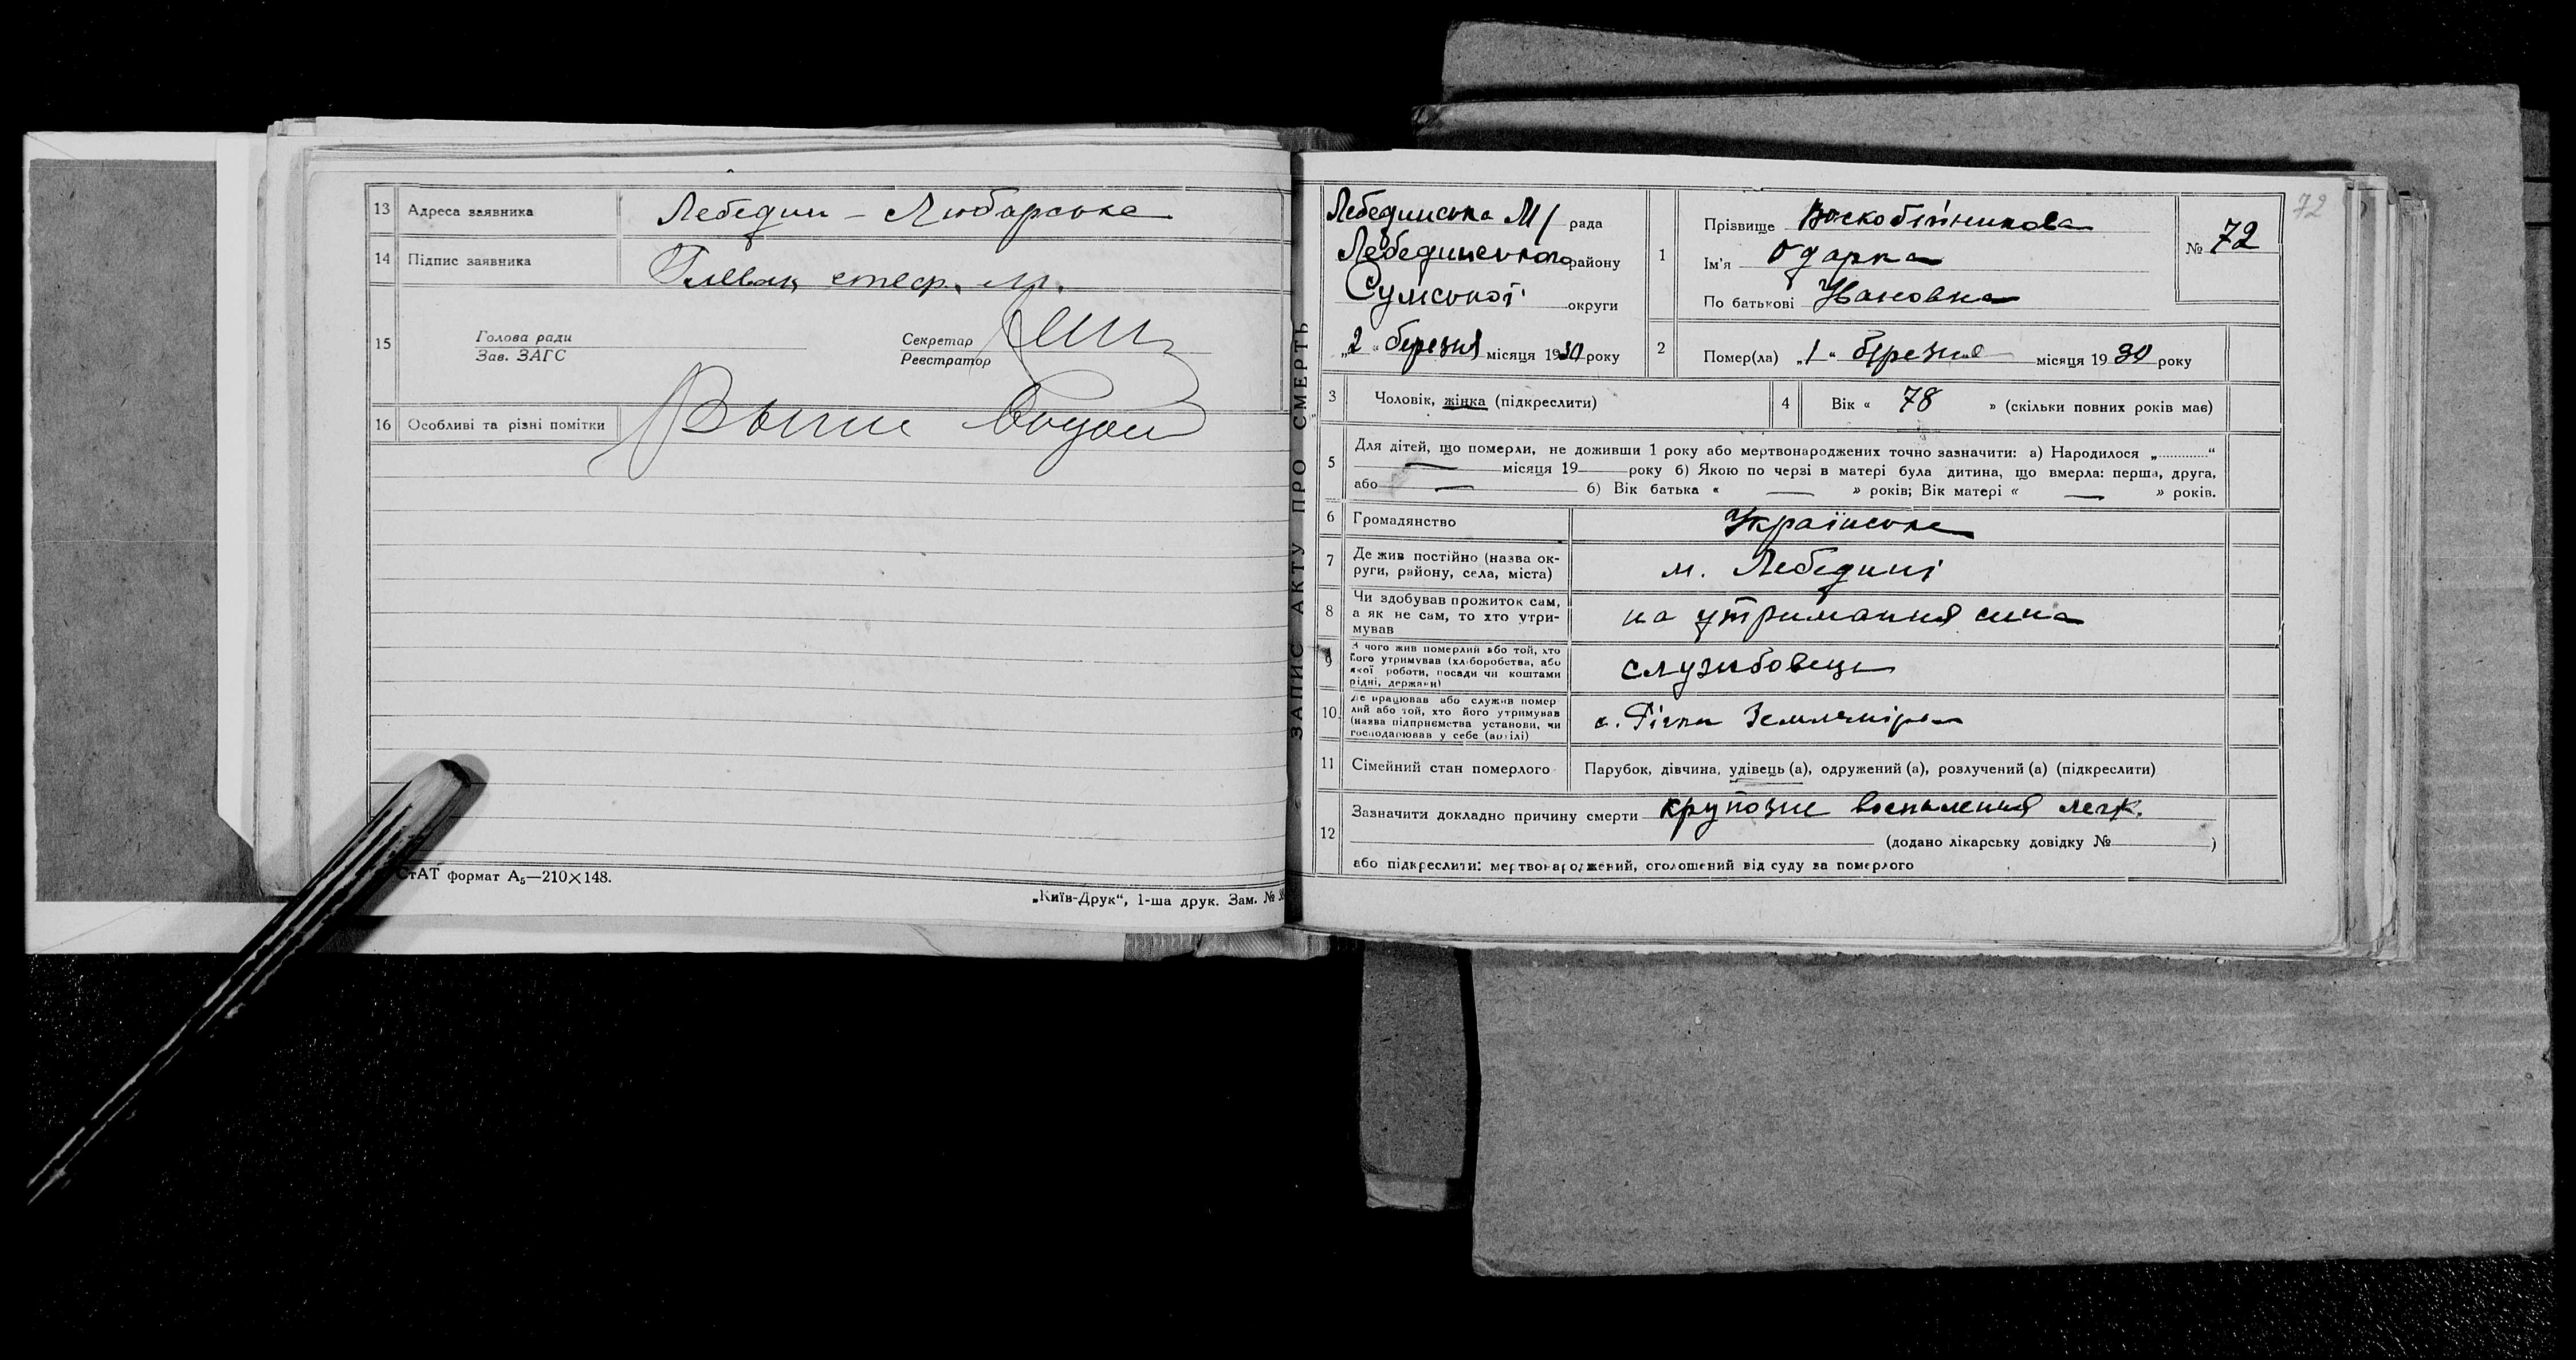 13 Адреса заявника Лебедин – Любарська
14 Підпис заявника
15 Голова ради
Зав. ЗАГС
Секретар
Реєстратор
16 Особливі та різні помітки
СтАТ формат А₅—210×148.
„Київ-Друк“, 1-ша друк. Зам. №
ЗАПИС АКТУ ПРО СМЕРТЬ
72
Лебединська М/ рада
Лебединського району
Сумської округи
„2“ березня місяця 1930 року
1 Прізвище Воскобійникова
Ім'я Одарка
По батькові Івановна
№ 72
2 Помер(ла) „1“ березня місяця 1930 року
3 Чоловік, жінка (підкреслити)
4 Вік « 78 » (скільки повних років має)
5 Для дітей, що померли, не доживши 1 року або мертвонароджених точно зазначити: а) Народилося „............“
— місяця 19 — року б) Якою по черзі в матері була дитина, що вмерла: перша, друга,
або — б) Вік батька « — » років; Вік матері « — » років.
6 Громадянство Українське
7 Де жив постійно (назва ок-
руги, району, села, міста) м. Лебедині
8 Чи здобував прожиток сам,
а як не сам, то хто утри-
мував на утримання сина
9 З чого жив померлий або той, хто
його утримував (хліборобства, або
якої роботи, посади чи коштами
рідні, держави) службовець
10 Де працював або служив помер
лий або той, хто його утримував
(назва підприємства установи, чи
господарював у себе (артілі) с. Річки Землемірем
11 Сімейний стан померлого Парубок, дівчина, удівець (а), одружений (а), розлучений (а) (підкреслити)
12 Зазначити докладно причину смерти крупозне воспаления легк.
(додано лікарську довідку № )
або підкреслити: мертвонароджений, оголошений від суду за померлого